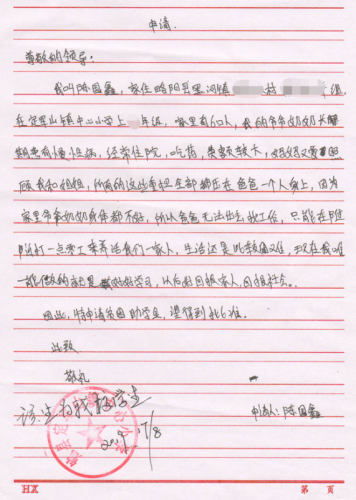 申请
尊敬的领导:
我叫陈国鑫,家住 阳县黑河镇 村 组,
在 山镇中心小学上 年级,家里有6口人,我的爷爷奶奶长
期患有慢性病,经常住院,吃药,费额较大,妈妈又要照
顾我和姐姐,所有的这些重担全部都压在爸爸一个人身上,因为
家里爷爷奶奶身体都不好,所以爸爸无法出去找工作,只能在附
近打一点零工来养活我们一家人,生活还是比较困难,现在我唯
一能做的就是好好学习,以后好回报家人,回报社会。
因此,特申请贫困助学金,望得到批准。
此致
敬礼
该生为我校学生
申请人:陈国鑫
17/8
HX
第 页